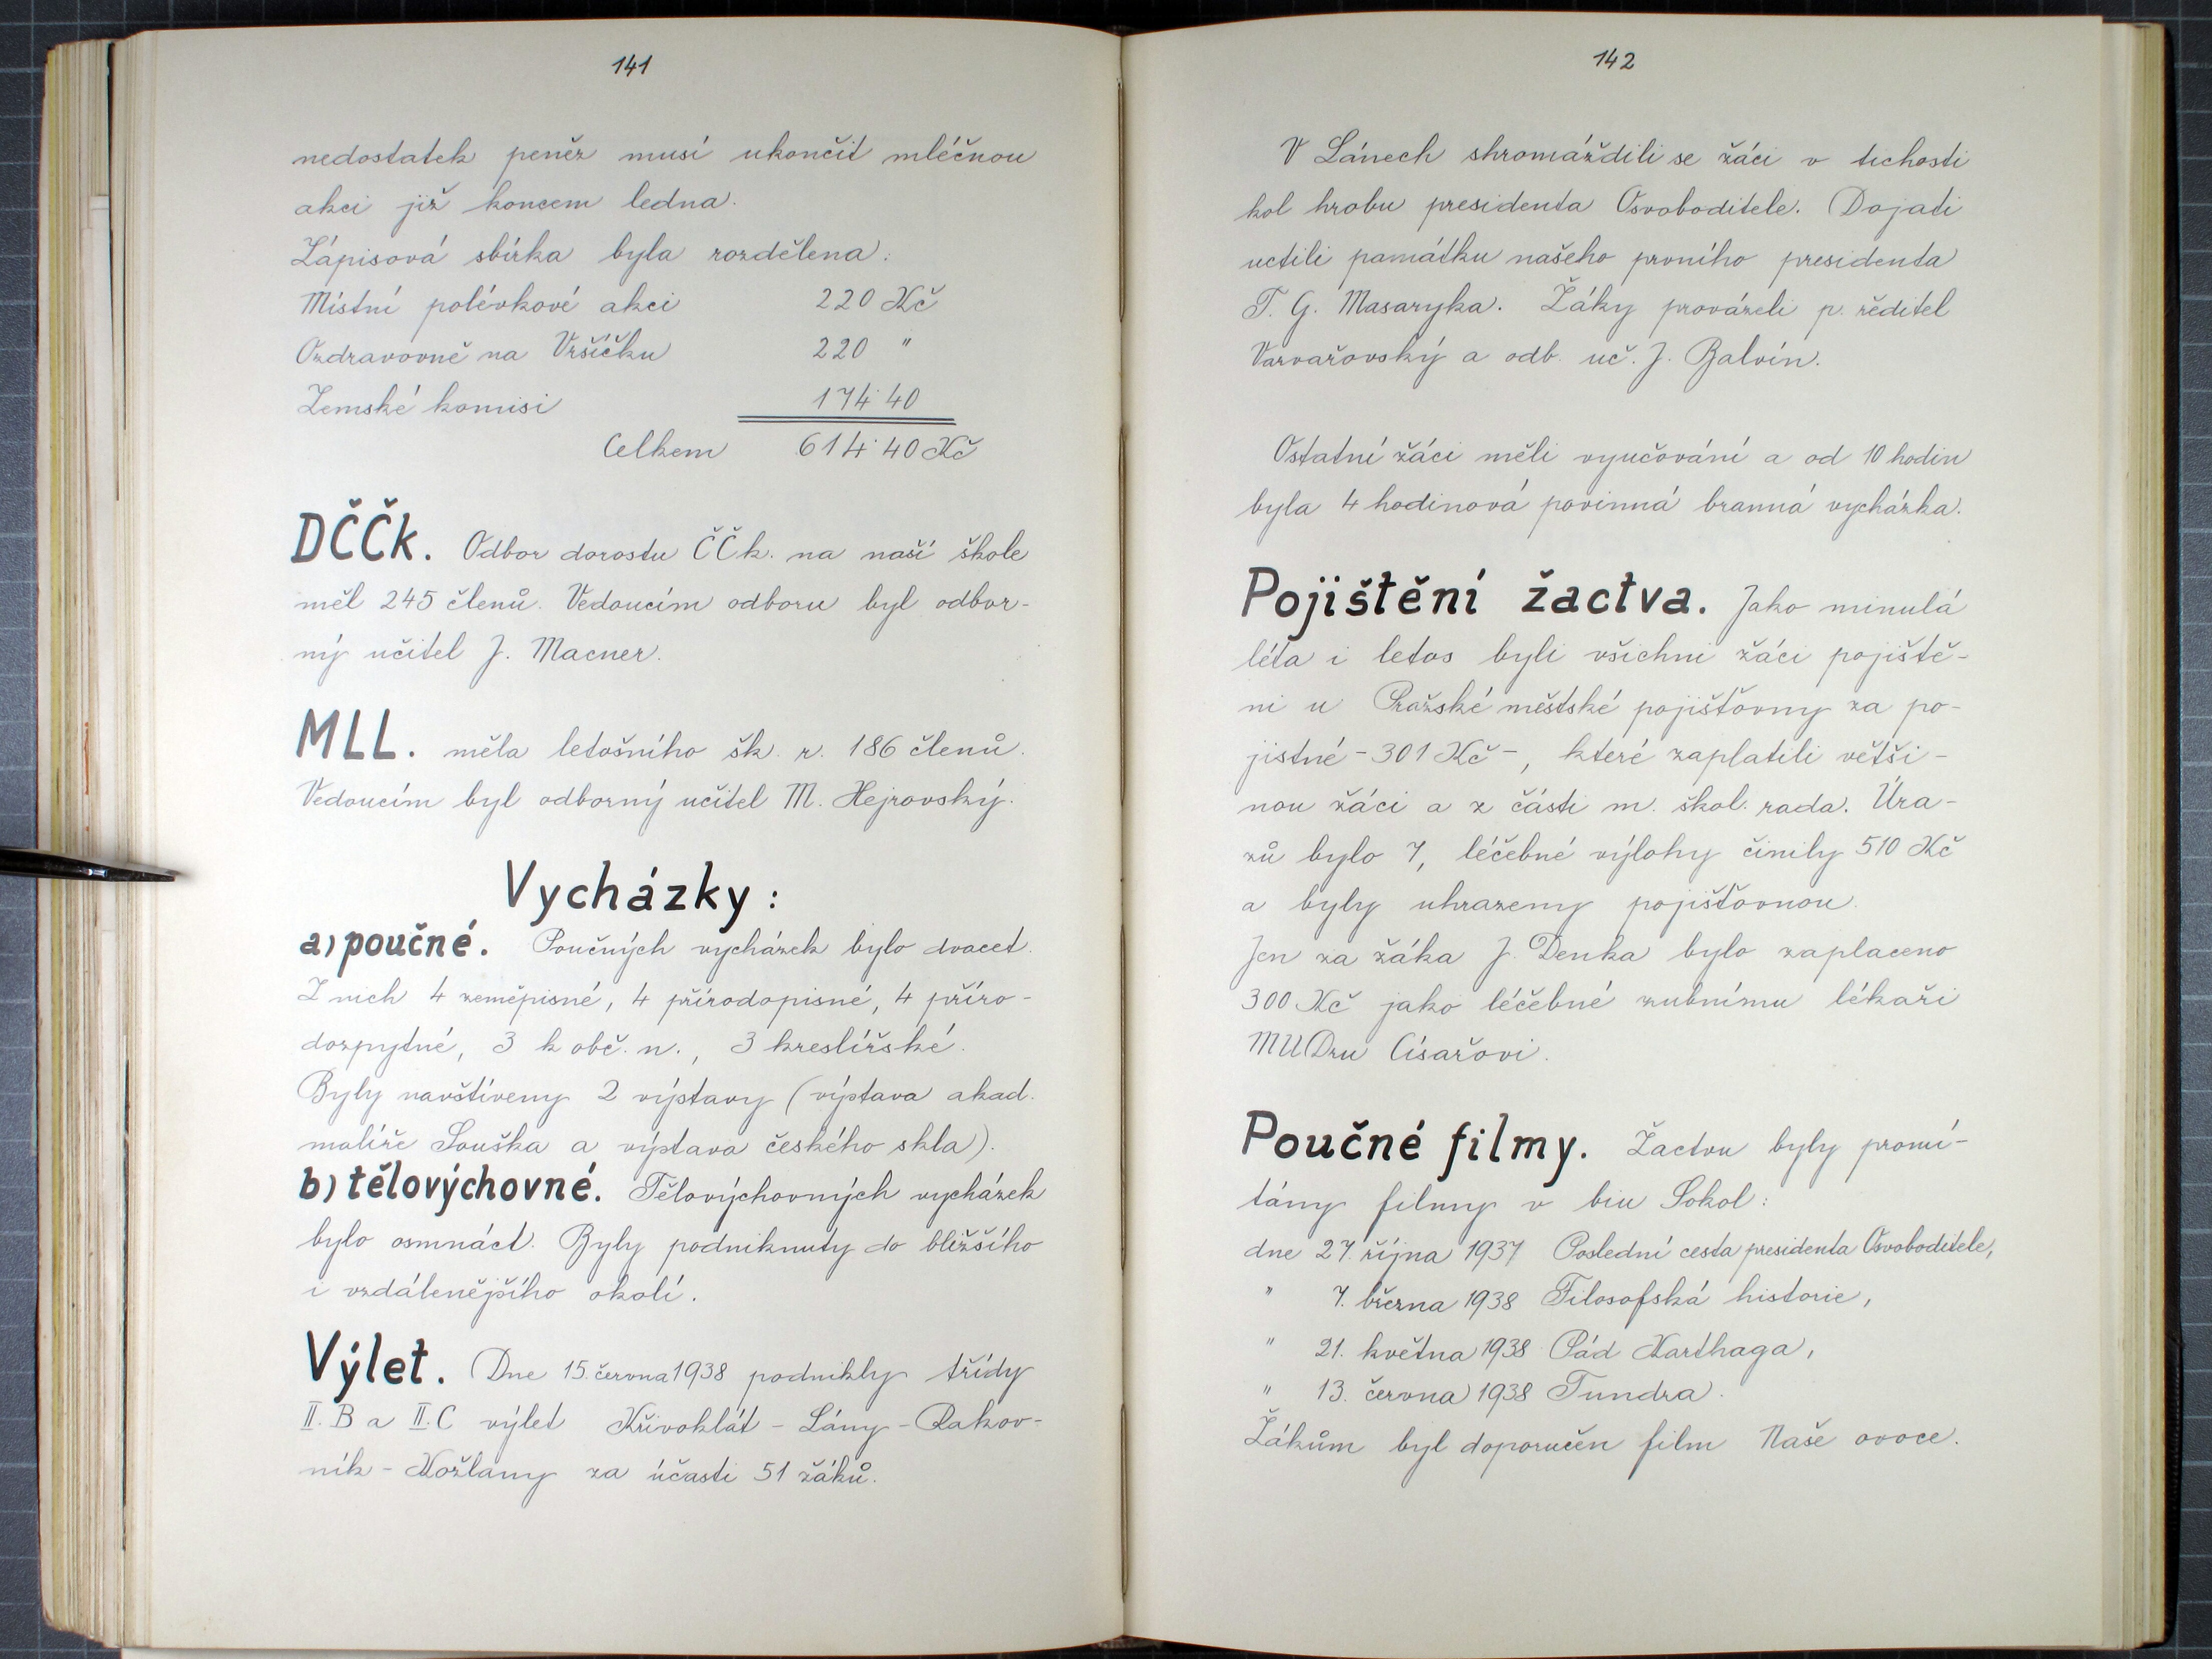 141
nedostatek peněz musí ukončit mléčnou
akci již koncem ledna.
Zápisová sbírka byla rozdělena:
Místní polévkové akci 220 Kč
Ozdravovně na Vršíčku 220 "
Zemské komisi 174·40
Celkem 614·40 Kč
DČČk. Odbor dorostu ČČk. na naší škole
měl 245 členů. Vedoucím odboru byl odbor-
ný učitel J. Macner.
MLL. měla letošního šk. r. 186 členů.
Vedoucím byl odborný učitel M. Hejrovský.
Vycházky:
a) poučné. Poučných vycházek bylo dvacet.
Z nich 4 zeměpisné, 4 přírodopisné, 4 příro-
dozpytné, 3 k obč. n., 3 kreslířské.
Byly navštíveny 2 výstavy (výstava akad.
malíře Souška a výstava českého skla).
b) tělovýchovné. Tělovýchovných vycházek
bylo osmnáct. Byly podniknuty do bližšího
i vzdálenějšího okolí.
Výlet. Dne 15. června 1938 podnikly třídy
II. B a II. C výlet Křivoklát - Lány - Rakov-
ník - Kožlany za účasti 51 žáků.
142
V Lánech shromáždili se žáci v tichosti
kol hrobu presidenta Osvoboditele. Dojati
uctili památku našeho prvního presidenta
T. G. Masaryka. Žáky prováželi p. ředitel
Varvařovský a odb. uč. J. Balvín.
Ostatní žáci měli vyučování a od 10 hodin
byla 4 hodinová povinná branná vycházka.
Pojištění žactva. Jako minulá
léta i letos byli všichni žáci pojiště-
ni u Pražské městské pojišťovny za po-
jistné - 301 Kč -, které zaplatili větši-
nou žáci a z části m. škol. rada. Úra-
zů bylo 7, léčebné výlohy činily 510 Kč
a byly uhrazeny pojišťovnou.
Jen za žáka J. Denka bylo zaplaceno
300 Kč jako léčebné zubnímu lékaři
MUDru Císařovi.
Poučné filmy. Žactvu byly promí-
tány filmy v biu Sokol:
dne 27. října 1937 Poslední cesta presidenta Osvoboditele,
" 7. března 1938 Filosofská historie,
" 21. května 1938 Pád Karthaga,
" 13. června 1938 Tundra.
Žákům byl doporučen film Naše ovoce.